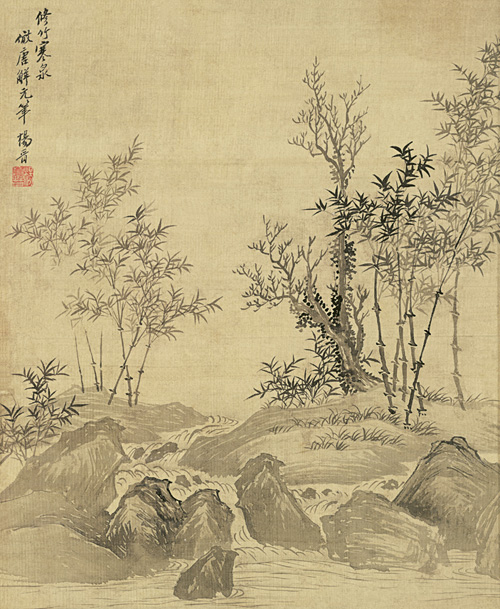 修竹寒泉
倣唐解元筆 楊晋